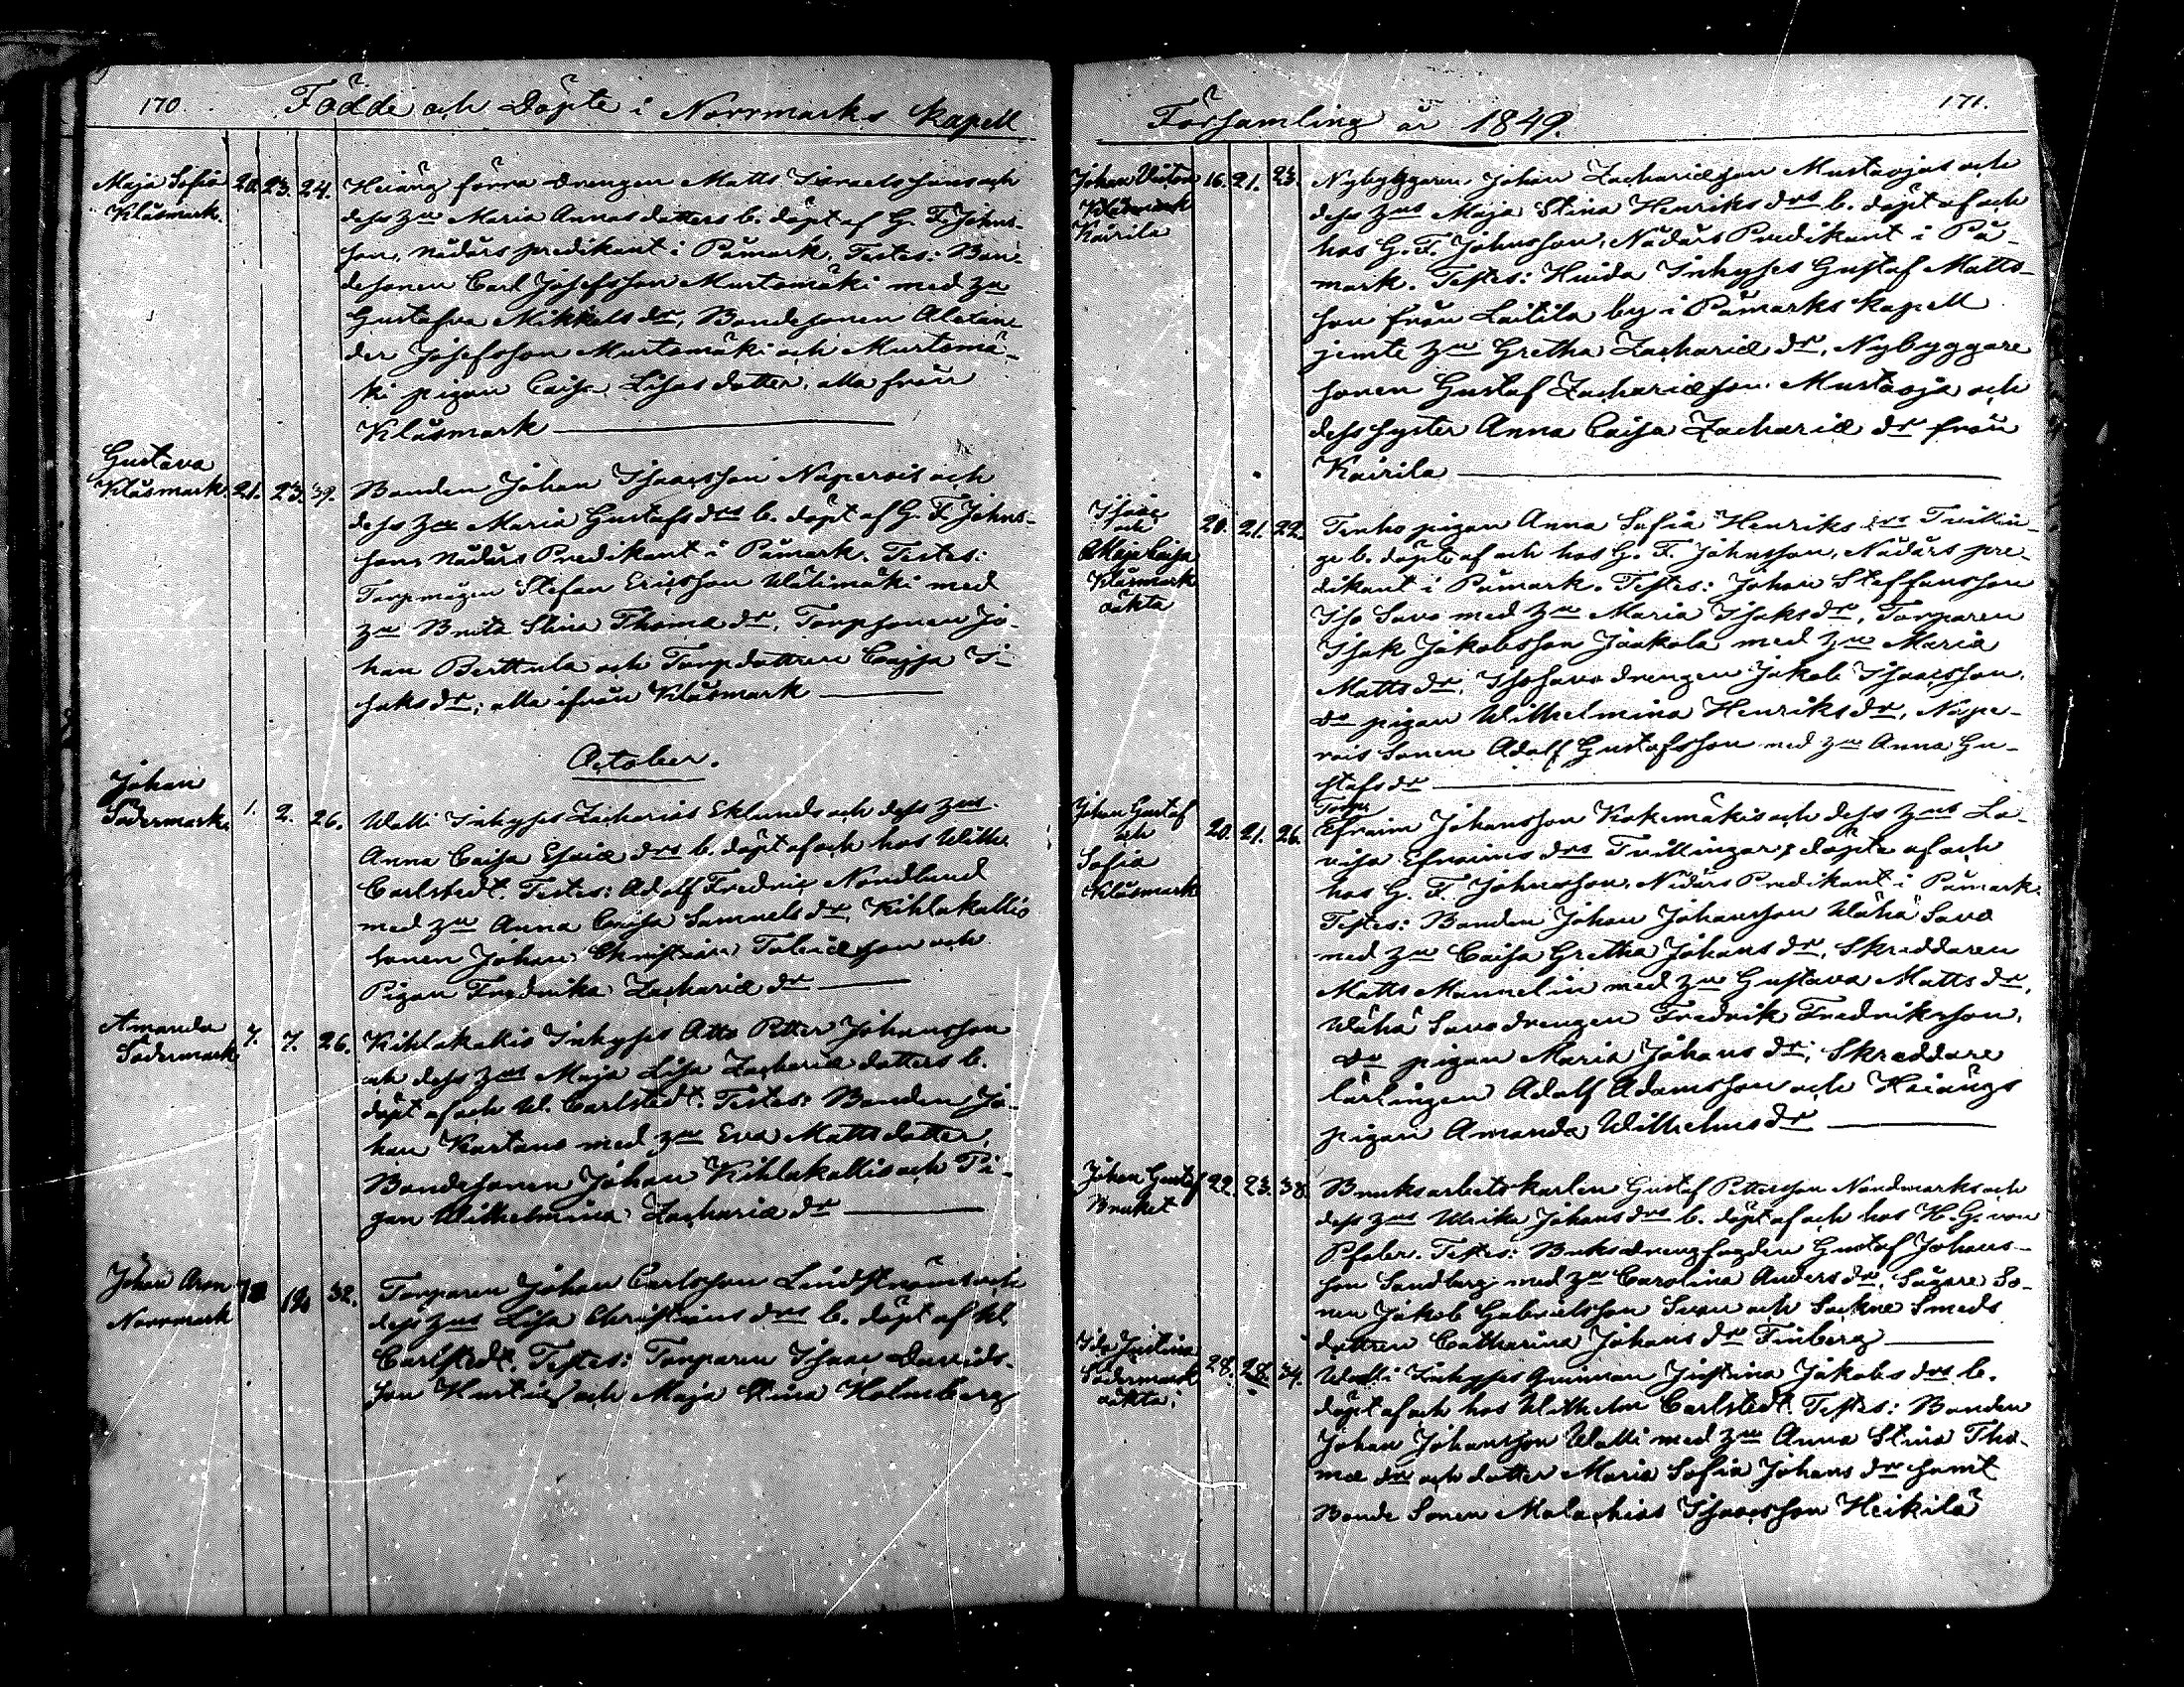 170. Födde och Döpte i Norrmarks Kapell
Maja Sofia 20. 23. 24. Heiäng förra drengen Matts Israelssons och
Klåsmark. dess Hu Maria Annas dotters b. döpt af G. F. Johns-
son, nådårs predikant i Påmark. Testes: Bon-
desonen Carl Josefsson Murtomäki med Hu
Gustafva Mikkels dr, Bondesonen Alexan-
der Josefsson Murtomäki och Murtomä-
ki pigan Caisa Lisas dotter, alla från
Klåsmark
Gustava
Klåsmark 21. 23. 39. Bonden Johan Isaacsson Naperois och
dess Hu Maria Gustafs drs b. döpt af G. F. Johns-
son, nådårs Predikant i Påmark. Testes:
Torpmågen Stefan Ericsson Wälimäki med
Hu Brita Stina Thomæ dr, Torpsonen Jo-
han Berttula och Torpdottren Cajsa I-
saks dr; alla ifrån Klåsmark
October.
Johan
Södermark. 1. 2. 26. Walli Inhyses Zacharias Eklunds och dess Hus
Anna Caisa Esaiæ drs b. döpt af och hos Wilh.
Carlstedt. Testes: Adolf Fredric Nordlund
med Hu Anna Caisa Samuels dr, Kihlakallio
sonen Johan Christian Tobiæson och
Pigan Fredrika Zachariæ dr
Amanda
Södermark 7. 7. 26. Kihlakallio Inhyses Otto Petter Johansson
och dess Hus Maja Lisa Zachariæ dotters b.
döpt af och W. Carlstedt. Testes: Bonden Jo-
han Kartano med Hu Eva Mattsdotter,
Bondesonen Johan Kihlakallio och Pi-
gan Wilhelmina Zachariæ dr
Johan Aron
Norrmark 32. Torparen Johan Carlsson Lindströms och
dess Hus Lisa Christians drs b. döpt af
Carlstedt. Testes: Torparen Isaac Davids-
son och Maja Stina Holmberg
Församling år 1849. 171.
Johan 16. 21. 23. Nybyggaren Johan Zachariæson Mustaojas och
Klåsmark dess Hus Maja Stina Henriks drs b. döpt af och
Kairila hos G. F. Johnsson, Nådårs Predikant i På-
mark. Testes: Inhyses Gustaf Matts-
son från Laitila by i Påmarks Kapell
jemte Hu Gretha Zachariæ dr, Nybyggare
sonen Gustaf Zachariæson Mustaoja och
dess syster Anna Caisa Zachariæ dr från
Kairila
Isaac
och
Maja Caisa
Klåsmark
oäkta
20. 21. 22. Tenho pigan Anna Sofia Henriks drs Tvillin-
ge b. döpte af och hos G. F. Johnsson, Nådårs pre-
dikant i Påmark. Testes: Johan Steffansson
Iso Savo med Hu Maria Isaks dr, Torparen
Isak Jakobsson Jaakola med Hu Maria
Matts dr, Isosavo drengen Jakob Isaacsson,
do pigan Wilhelmina Henriks dr, Nape-
rois Sonen Adolf Gustafsson med Hu Anna Gu-
stafs dr
Johan Gustaf
och
Sofia
Klåsmark
20. 21. 26. Torp.
Efraim Johansson Kokemäkis och dess Hus Lo-
visa Efraims drs Tvillingar, döpte af och
hos G. F. Johnsson, Nådårs Predikant i Påmark.
Testes: Bonden Johan Johansson Wähä Savo
med Hu Caisa Gretha Johans dr, Skreddaren
Matts Mannelin med Hu Gustava Matts dr,
Wähä Savo drengen Fredrik Fredriksson,
do pigan Maria Johans dr; Skræddare
lärlingen Adolf Adamsson och Heiängs
pigan Amanda Wilhelms dr
Johan Gustaf
Bruket 22. 23. 38. Bruksarbetskarlen Gustaf Pettersson Nordmarks och
dess Hus Ulrika Johans drs b. döpt af och hos H. G. von
Pfaler. Testes: Bruksdrengfogden Gustaf Johans-
son Sandberg med Hu Carolina Anders dr, Sågare So-
nen Jakob Gabrielsson Svan och Sockne Smeds
dottren Catharina Johans dr Finberg
Ida Justina
Södermark
oäkta;
28. 28. 34. Walli Inhyses qvinnan Justina Jakobs drs b.
döpt af och hos Wilhelm Carlstedt. Testes: Bonden
Johan Johansson Walli med Hu Anna Stina Tho-
mæ dr och dotter Maria Sofia Johans dr samt
Bonde Sonen Malachias Isaacsson Heikilä